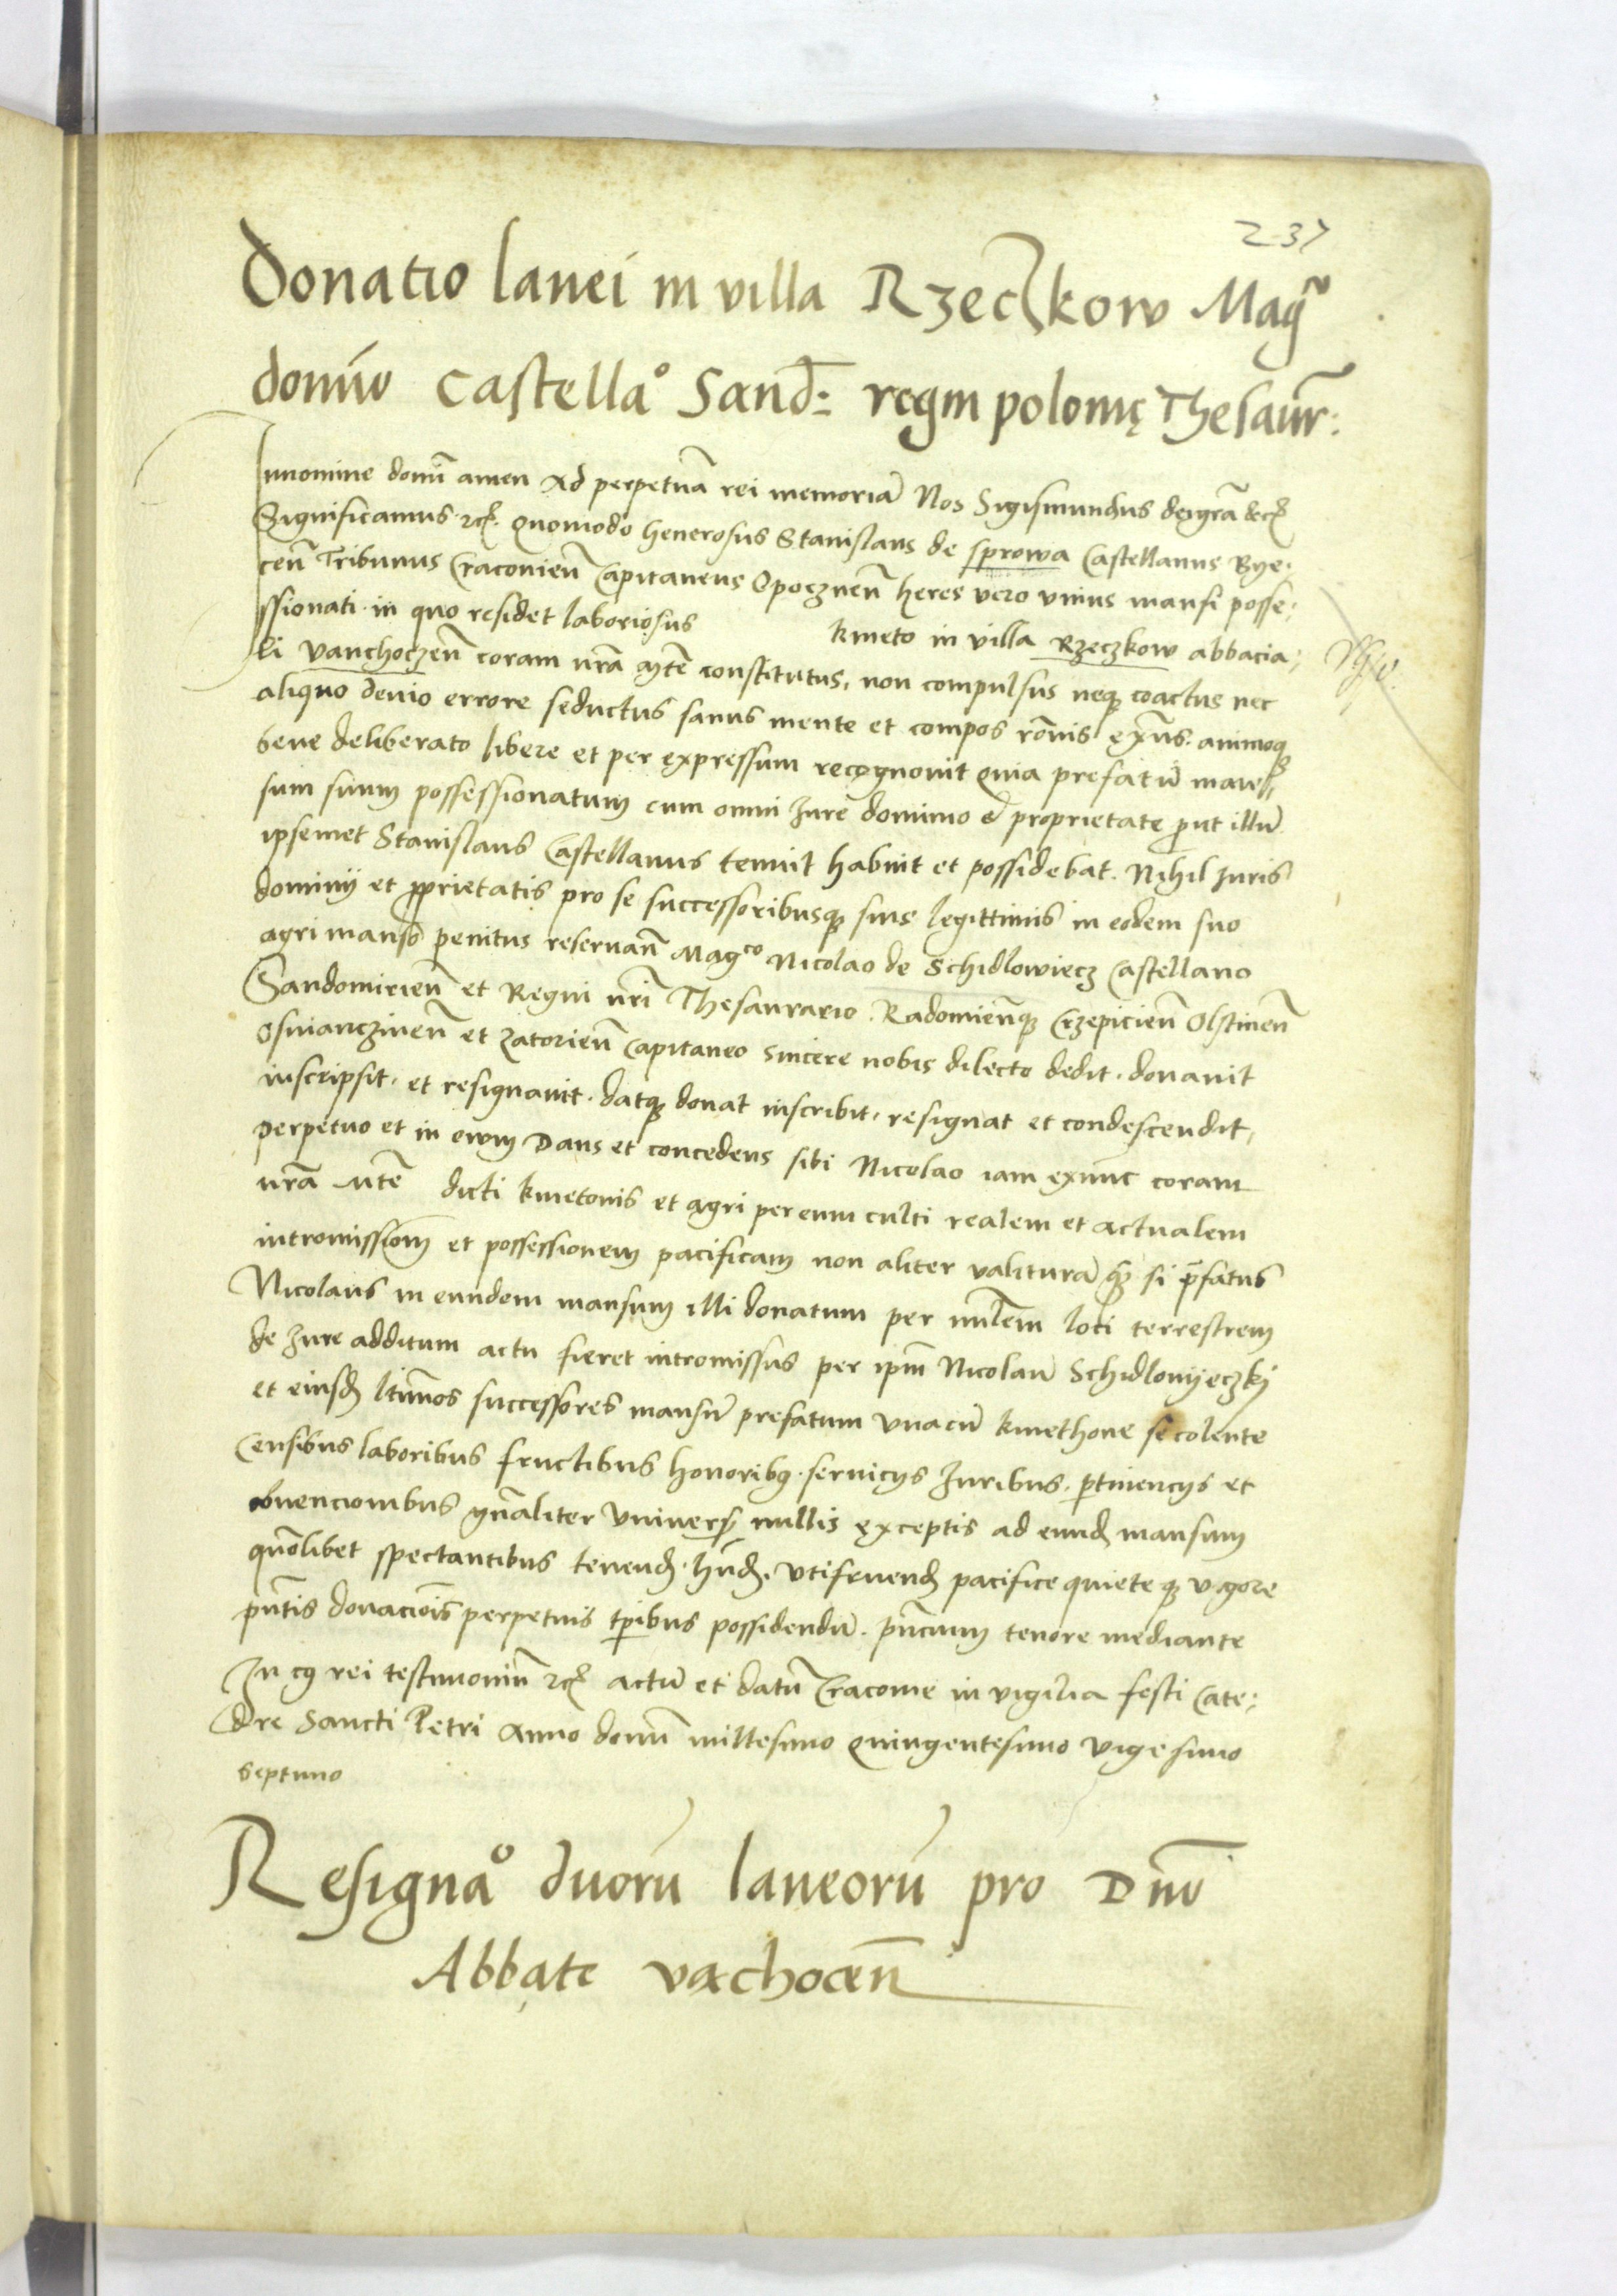 237
Donatio lanei in villa Rzeczkow Magco
domino Castellao Sand: regni polonię Thesaur:
Innomine domi amen Ad perpetuā rei memoriā Nos Sigismundus deigrā &c
Significamus &c. Quomodo Generosus Stanislaus de sprowa Castellanus Bye-
cen Tribunus Cracovien Capitaneus Opocznen heres vero unius mansi posse-
ssionati in quo residet laboriosus kmeto in villa Rzeczkow abbacia-
li Vanchoczen coram nrā mte constitutus, non compulsus neq coactus nec
aliquo devio errore seductus sanus mente et compos ronis exns. animoq
bene deliberato libere et per expressum recognovit Quia prefatū man-
sum suum possessionatum cum omni Jure dominio et proprietate prut illū
ipsemet Stanislaus Castellanus tenuit habuit et possidebat. Nihil Juris
dominij et pprietatis pro se successoribusq suis legittimis in eodem suo
agri manso penitus reservan Magco Nicolao de Schidlowiecz Castellano
Sandomirien et Regni nri Thesaurario Radomienq Crzepicien Olstinen
Osvianczimen et Zatorien Capitaneo Sincere nobis dilecto dedit. donavit
inscripsit. et resignavit. datq donat inscribit. resignat et condescendit,
perpetuo et in evum Dans et concedens sibi Nicolao iam exnunc coram
nrā Mte dicti kmetonis et agri per eum culti realem et actualem
intromissiom et possessionem pacificam non aliter valiturā q si pfatus
Nicolaus in eundem mansum illi donatum per mlem loci terrestrem
de Jure additum actu fieret intromissus per ipm Nicolaū Schidlovyeczkj
et eiusd ltimos successores mansū prefatum unacū kmethone se colente
Censibus laboribus fructibus honoribq. servicijs Juribus, ptinencijs et
obvencionibus gnaliter Univers nullis exceptis ad eund mansum
quolibet spectantibus tenend. hnd. Utifruend pacifice quiete q vigore
pntis donaciois perpetuis tpibus possidendū. pncium tenore mediante
In cq rei testimoniū &c actū et datū Cracovie in vigilia festi Cate-
dre Sancti Petri Anno domi millesimo Quingentesimo vigesimo
septimo
Resignao duorū laneorū pro Dno
Abbate vachocen